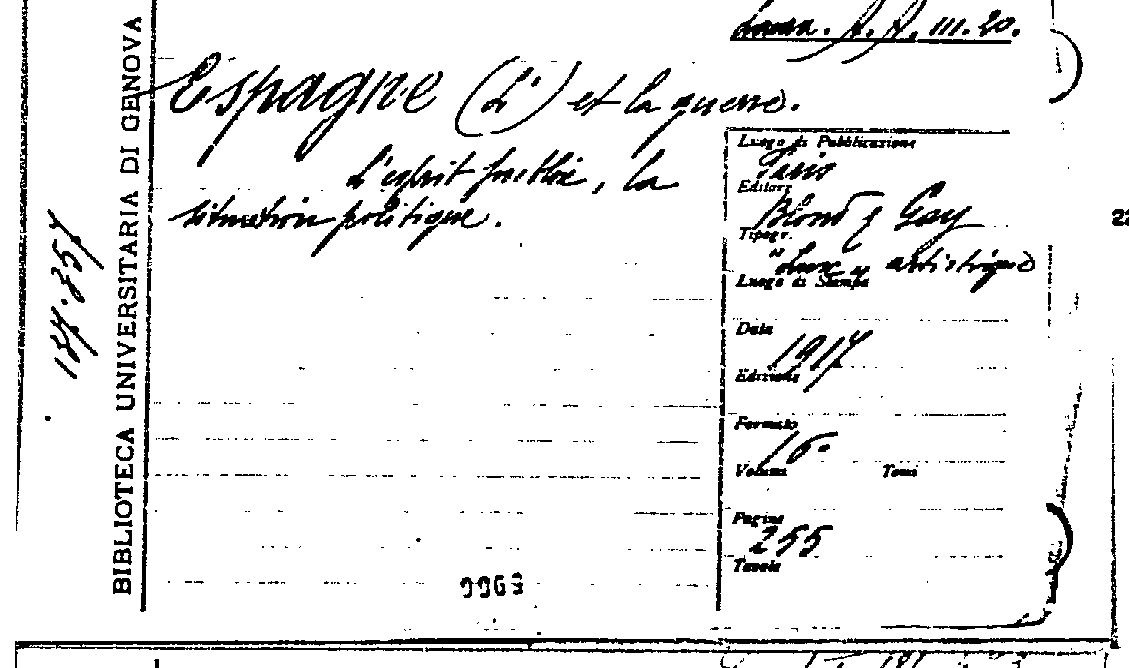 A. A. III. 20.
Espagne (L') et la guerre.
L'esprit public, la
situation politique.
BIBLIOTECA UNIVERSITARIA DI GENOVA
Luogo di Pubblicazione
Paris
Editore
Bloud & Gay
Tipogr.
artistique
Luogo di Stampa
Data
1917
Edizione
Formato
16°
Volumi Tomi
Pagine
255
Tavole
22